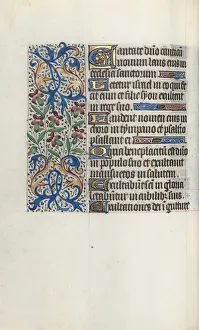 Cantate dño canticũ
novum laus eius in
ecclesia sanctorum
Letetur israel in eo qui fe
cit eum et filie syon exultent
in rege suo
Laudent nomen eius in
choro in tympano et psalterio
psallant ei
Quia beneplacitũ est dño
in populo suo et exaltavit
mansuetos in salutem
Exultabũt sci in gloria
letabũtur in cubilibꝫ suis
Exaltationes dei ĩ gutture